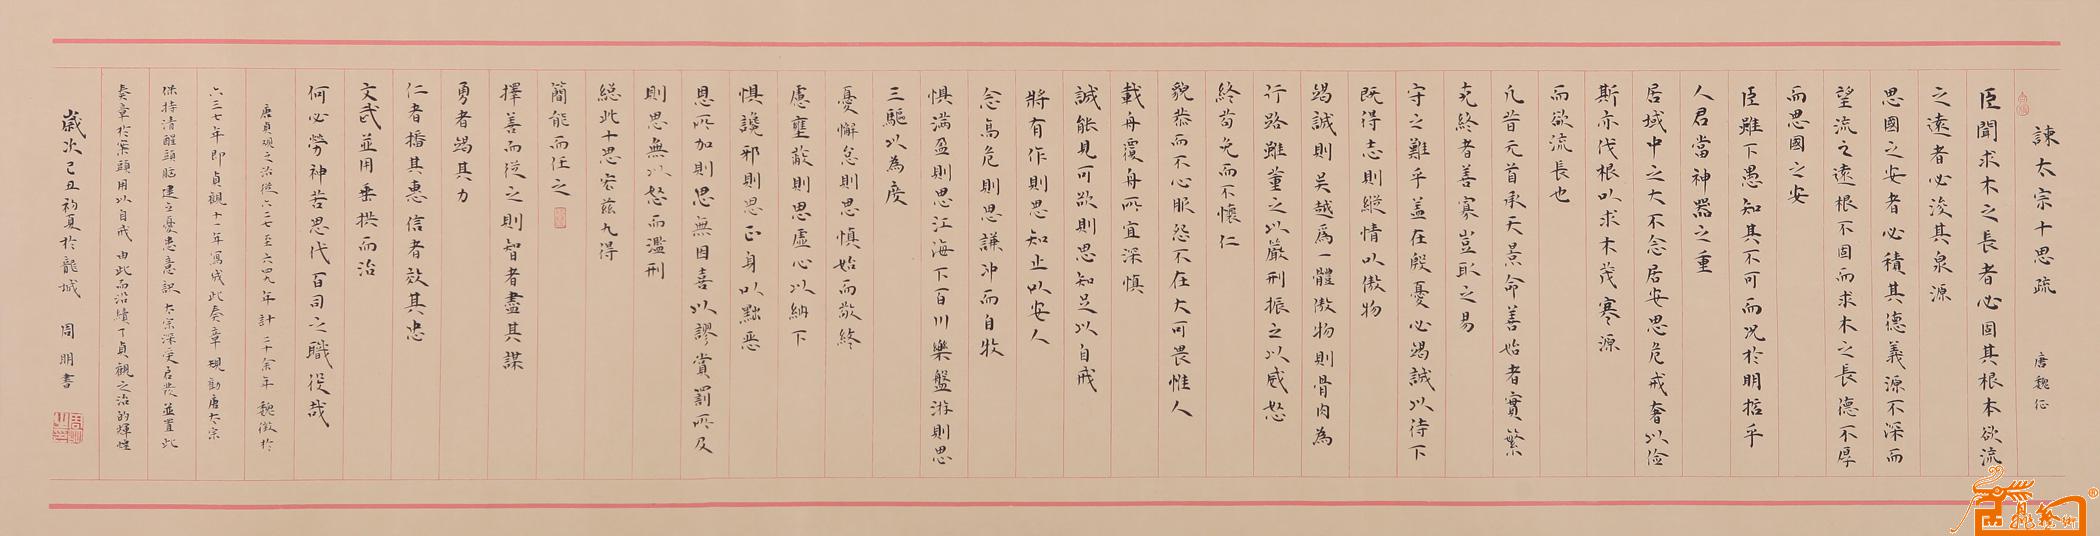 諫太宗十思疏 唐魏征
臣聞求木之長者必固其根本欲流
之遠者必浚其泉源
思國之安者必積其德義源不深而
望流之遠根不固而求木之長德不厚
而思國之安
臣雖下愚知其不可而况於明哲乎
人君當神器之重
居域中之大不念居安思危戒奢以儉
斯亦伐根以求木茂塞源
而欲流長也
凡昔元首承天景命善始者實繁
克終者善寡豈取之易
守之難乎盖在殷憂必竭誠以待下
既得志則縱情以傲物
竭誠則吴越爲一體傲物則骨肉為
行路雖董之以嚴刑振之以威怒
終苟免而不懷仁
貌恭而不心服怨不在大可畏惟人
載舟覆舟所宜深慎
誠能見可欲則思知足以自戒
將有作則思知止以安人
念高危則思謙沖而自牧
惧满盈則思江海下百川樂盤游則思
三驅以為度
憂懈怠則思慎始而敬終
慮壅蔽則思虛心以納下
惧讒邪則思正身以黜惡
恩所加則思無因喜以謬賞罰所及
則思無以怒而濫刑
總此十思宏兹九得
簡能而任之
擇善而從之則智者盡其謀
勇者竭其力
仁者播其惠信者效其忠
文武並用垂拱而治
何必勞神苦思代百司之職役哉
唐貞观之治從六二七至六四九年計二十余年魏徵於
六三七年即貞觀十一年寫成此奏章規勸唐太宗
保持清醒頭脑建立憂患意識太宗深受启發並置此
奏章於案頭用以自戒由此而沿續了貞觀之治的輝煌
歲次己丑初夏於龍城 周明書